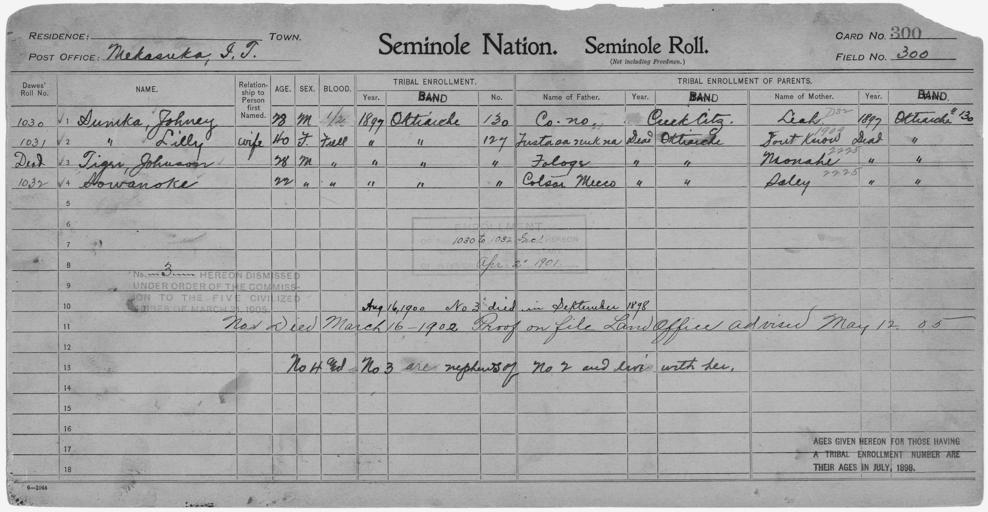 RESIDENCE: TOWN.
POST OFFICE: Mekasuka, I. T.
Seminole Nation. Seminole Roll.
(Not including Freedmen.)
CARD NO. 300
FIELD NO. 300
Dawes' Roll No. NAME. Relationship to Person first Named. AGE. SEX. BLOOD. TRIBAL ENROLLMENT. TRIBAL ENROLLMENT OF PARENTS.
Year. BAND No. Name of Father. Year. BAND Name of Mother. Year. BAND.
1030 √ 1 Sumka Johney 28 M 1/2 1897 Ottiarche 130 Co. no. Creek Citz. Leah 1897 Ottiarche " 130
1031 √ 2 " Lilly wife 40 F. Full " " 127 Dead Ottiarche Dont Know Dead "
Died √ 3 Tigri, Johnson 28 M " " " " Fologe " " Monahe " "
1032 √ 4 Sowanoke 22 " " " " " Colsar Micco " " Saley 2225 " "
5
6
ENROLLMENT
7 1030 to 1032 Incl HEREON
8 Apr 2" 1901
No. 3 HEREON DISMISSED
9 UNDER ORDER OF THE COMMISSION TO THE FIVE CIVILIZED TRIBES OF MARCH 31, 1905.
10 Aug 16, 1900 No 3 died in September 1898
11 No 2 Died March 16-1902 Proof on file Land Office advised May 12 05
12
13 No 4 and No 3 are nephews of No 2 and live with her.
14
15
16
17
18
AGES GIVEN HEREON FOR THOSE HAVING
A TRIBAL ENROLLMENT NUMBER ARE
THEIR AGES IN JULY, 1898.
6—2068